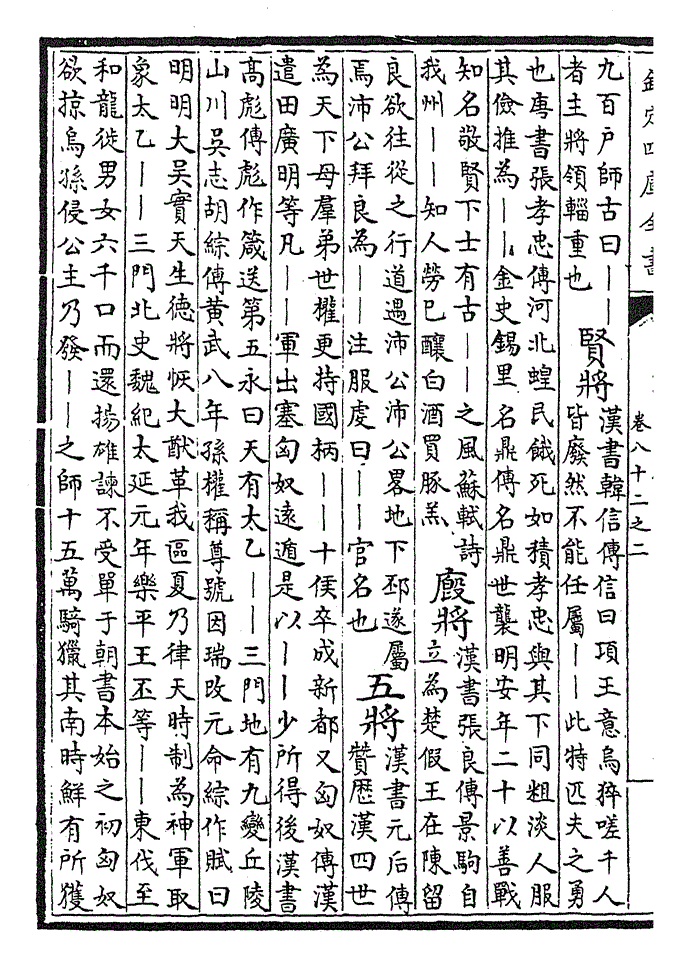 欽定四庫全書
卷八十二之二
九百户師古曰丨丨
者主將領輜重也
賢將
漢書韓信傳信曰項王意烏猝嗟千人
皆廢然不能任屬丨丨此特匹夫之勇
也唐書張孝忠傳河北蝗民餓死如積孝忠與其下同粗淡人服
其儉推為丨丨金史錫里 名鼎傳名鼎世襲明安年二十以善戰
知名敬賢下士有古丨丨之風蘇軾詩
我州丨丨知人勞巳釀白酒買豚羔
廏將
漢書張良傳景駒自
立為楚假王在陳留
良欲往從之行道遇沛公沛公畧地下邳遂屬
焉沛公拜良為丨丨注服虔曰丨丨官名也
五將
漢書元后傳
贊歷漢四世
為天下母羣弟世權更持國柄丨丨十侯卒成新都又匈奴傳漢
遣田廣明等凡丨丨軍出塞匈奴遠遁是以丨丨少所得後漢書
高彪傳彪作箴送第五永曰天有太乙丨丨三門地有九變丘陵
山川吳志胡綜傳黃武八年孫權稱尊號因瑞改元命綜作賦曰
明明大吳實天生德將恢大猷革我區夏乃律天時制為神軍取
象太乙丨丨三門北史魏紀太延元年樂平王丕等丨丨東伐至
和龍徙男女六千口而還揚雄諫不受單于朝書本始之初匈奴
欲掠烏孫侵公主乃發丨丨之師十五萬騎獵其南時鮮有所獲